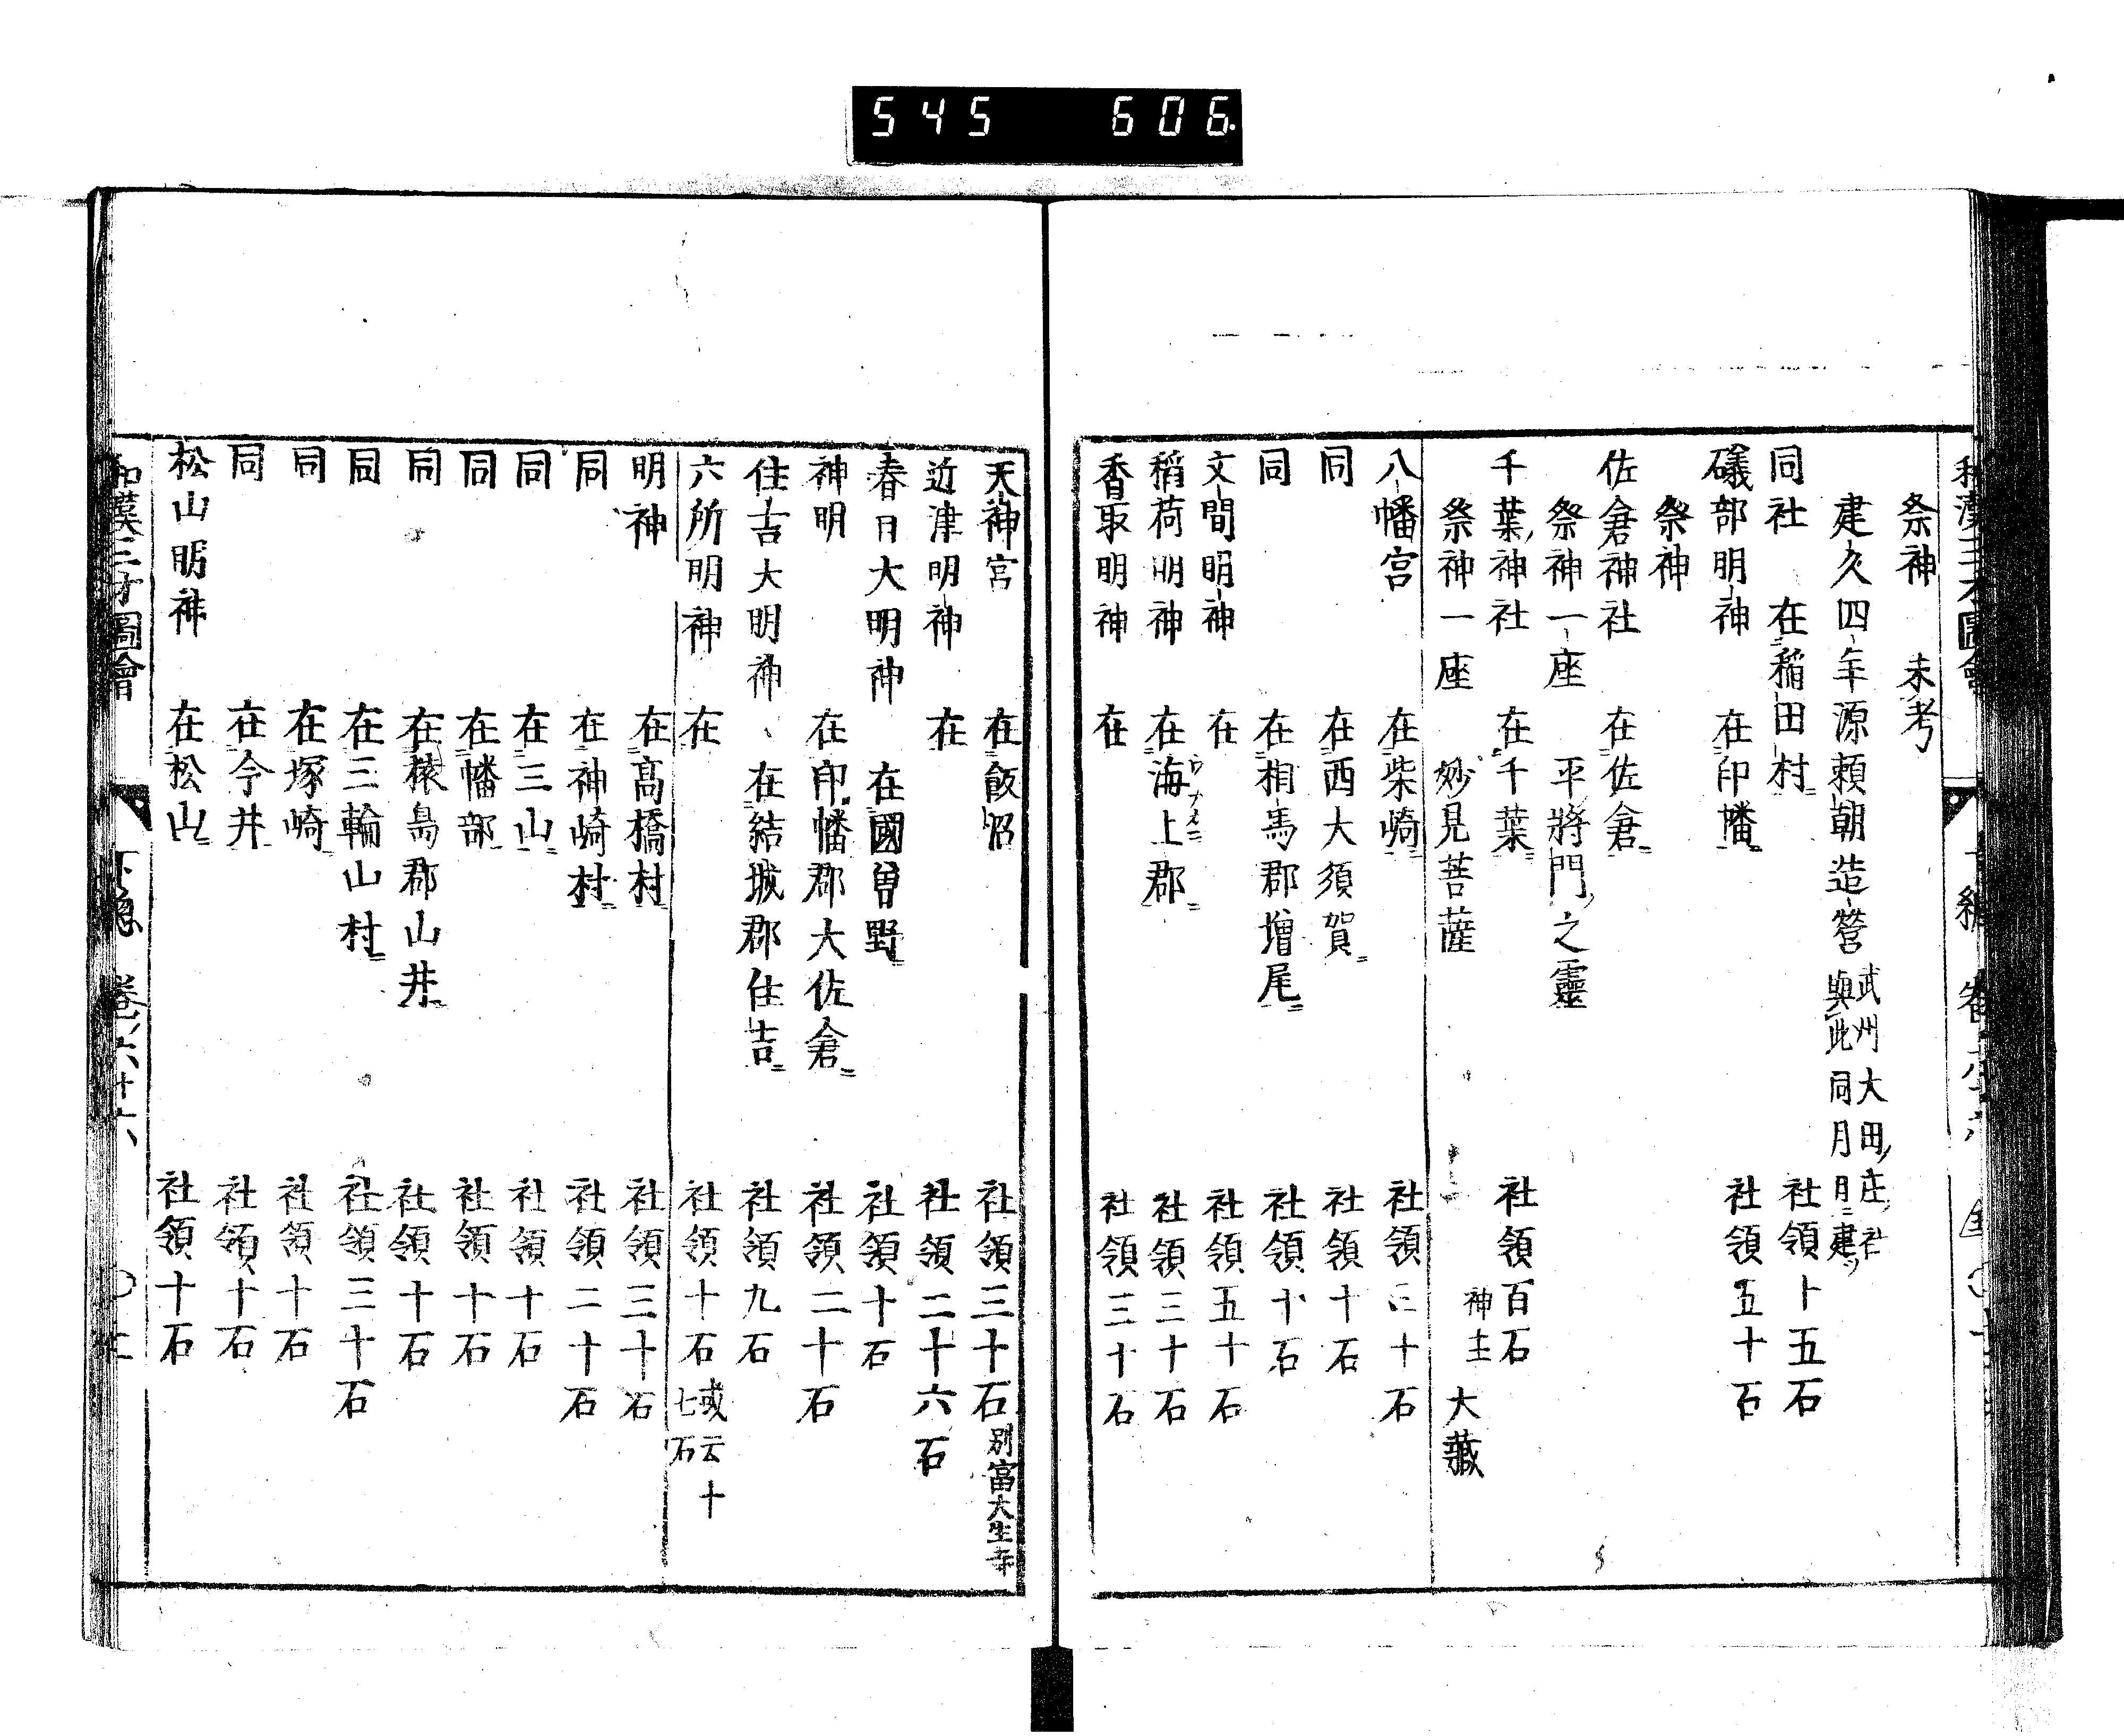 545 606
和漢三才圖會
祭神 未考
建久四年源頼朝造營 武州大田庄社
與此同月日建
同社 在稲田村 社領十五石
礒部明神 在印幡 社領五十石
祭神
佐倉神社 在佐倉
祭神一座 平將門之靈
千葉神社 在千葉 社領百石
祭神一座 妙見菩薩 神主 大藏
八幡宮 在柴崎 社領二十石
同 在西大須賀 社領十石
同 在相馬郡増尾 社領十石
文間明神 在 社領五十石
稻荷明神 在海上郡 社領三十石
香取明神 在 社領三十石
天神宮 在飯沼 社領三十石 別當大生寺
近津明神 在 社領二十六石
春日大明神 在國曽野 社領十石
神明 在印幡郡大佐倉 社領二十石
住吉大明神 在結城郡住吉 社領九石
六所明神 在 社領十石 或云十
七石
明神 在髙橋村 社領三十石
同 在神崎村 社領二十石
同 在三山 社領十石
同 在幡部 社領十石
同 在猿島郡山井 社領十石
同 在三輪山村 社領三十石
同 在塚崎 社領十石
同 在今井 社領十石
松山明神 在松山 社領十石
和漢三才圖會 下総 卷六十六